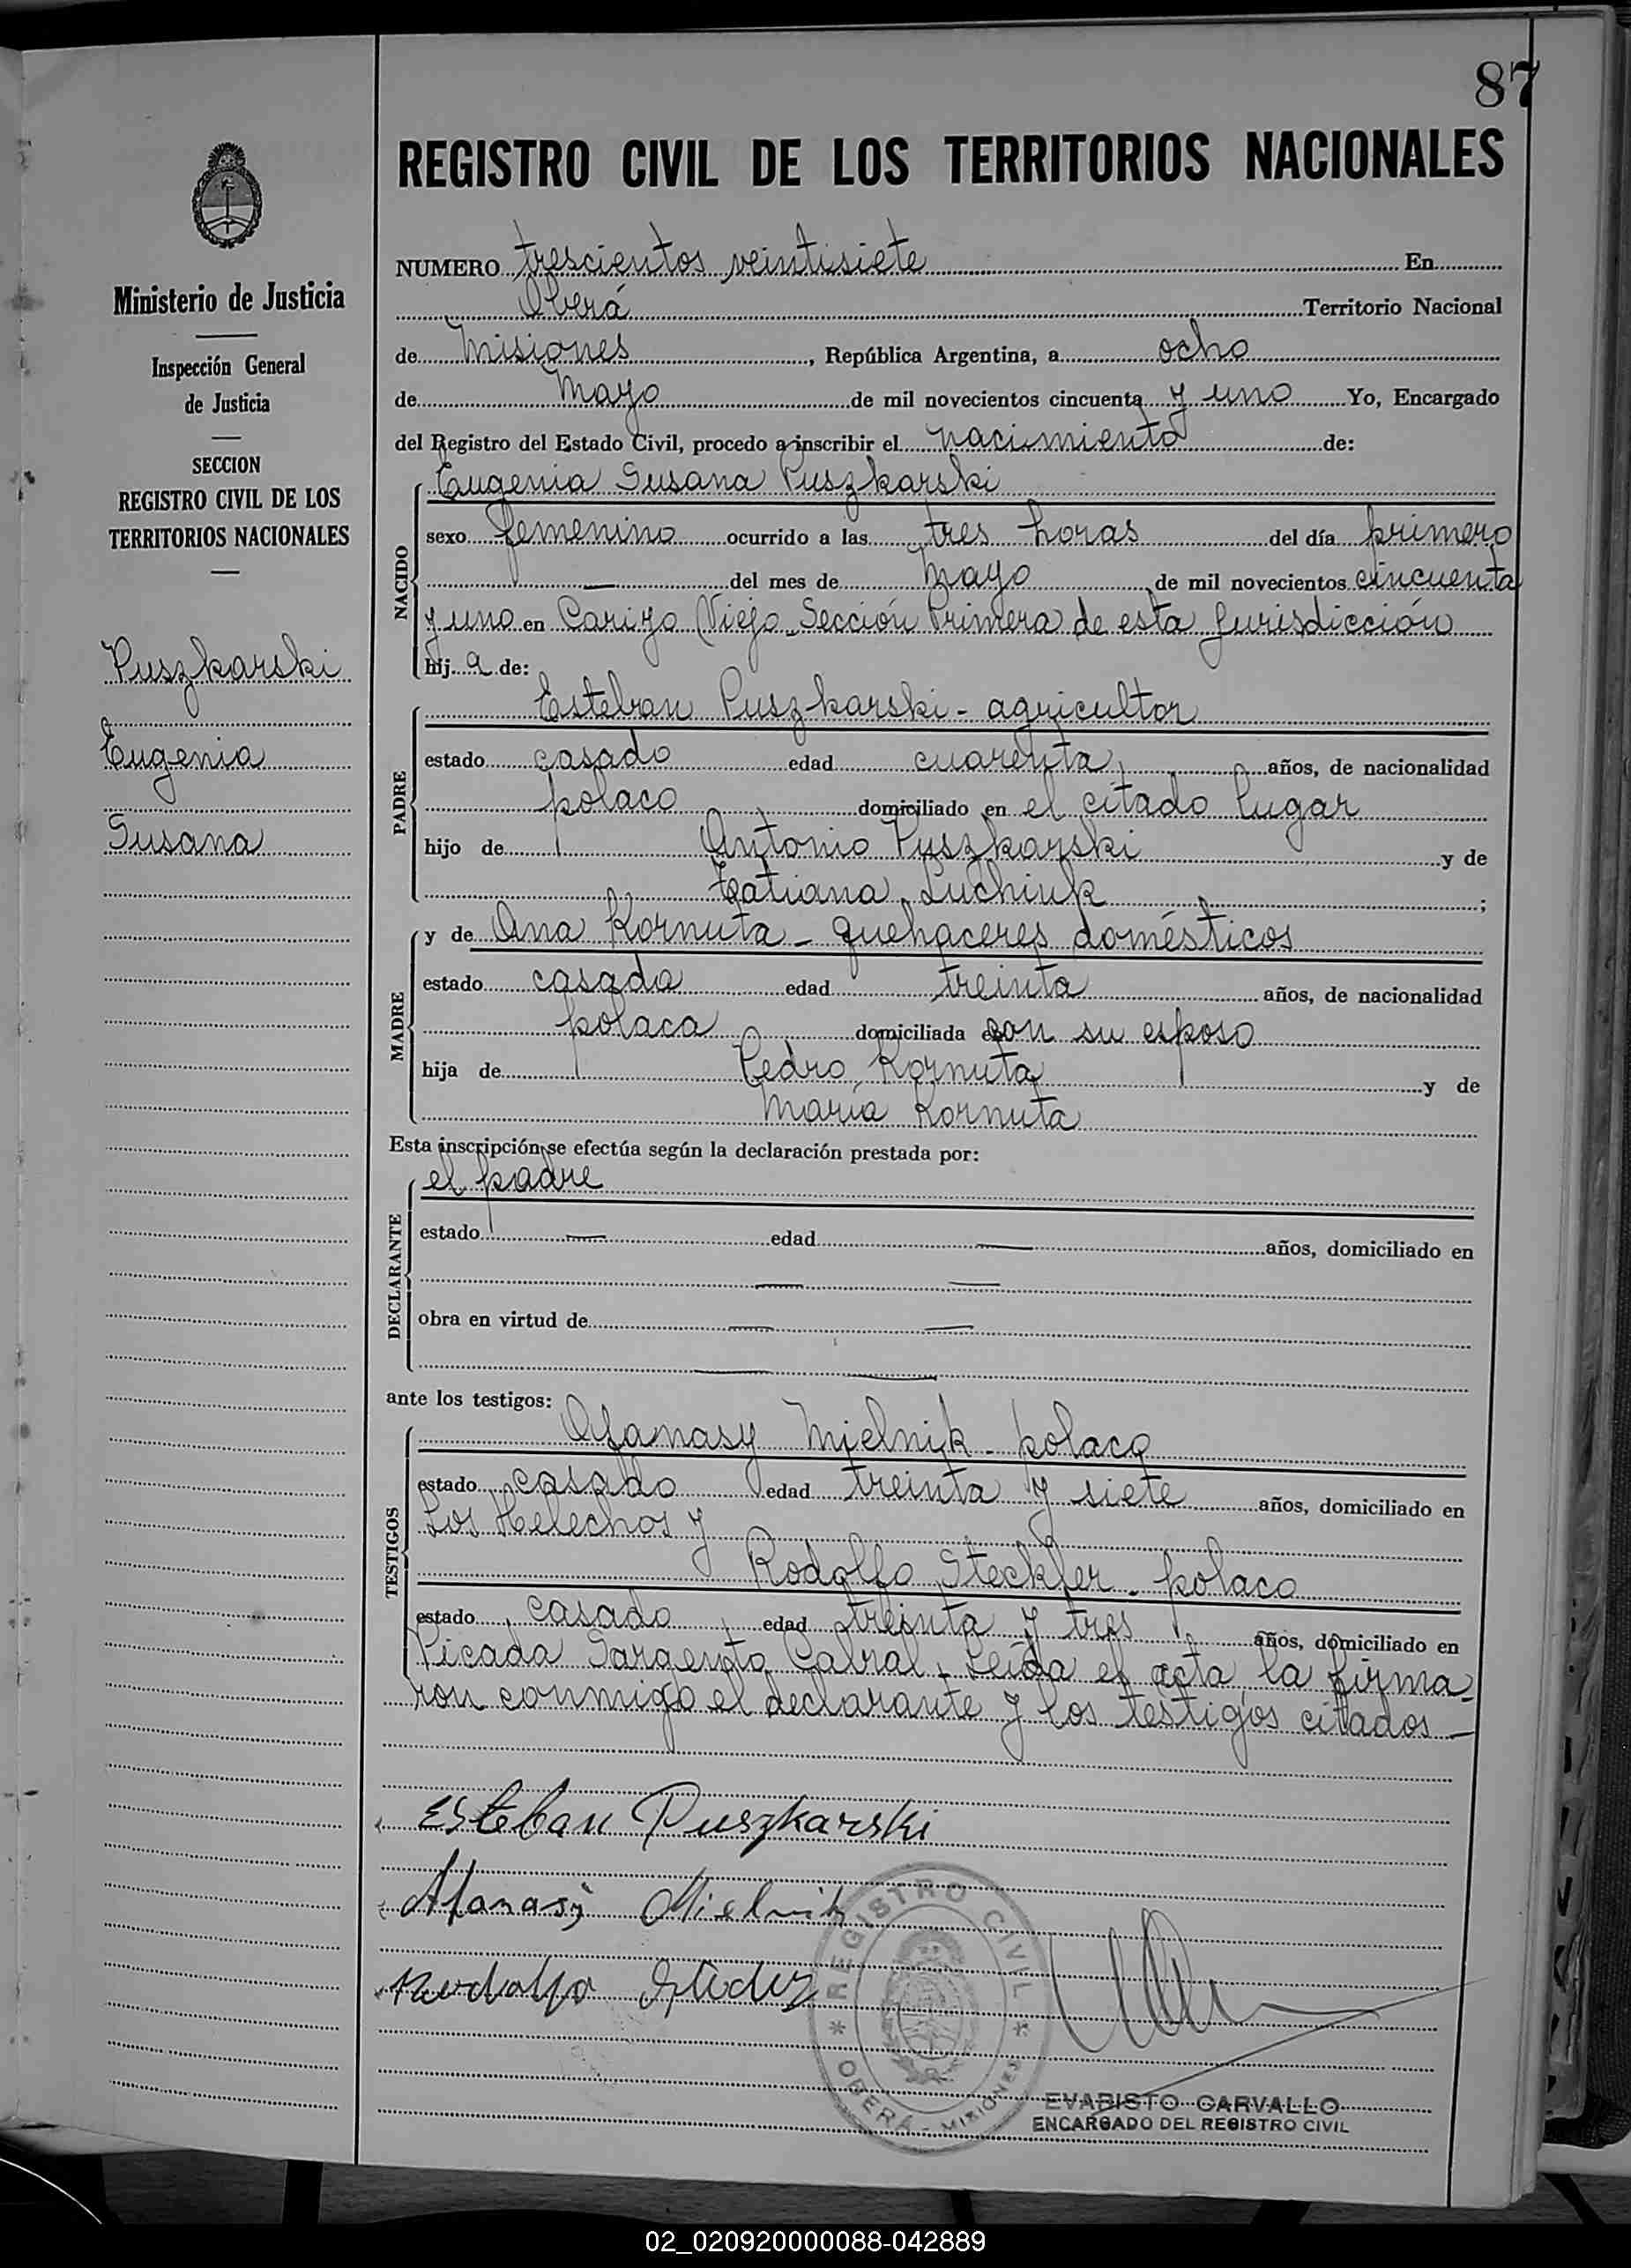 87
REGISTRO CIVIL DE LOS TERRITORIOS NACIONALES
Ministerio de Justicia
Inspección General
de Justicia
SECCION
REGISTRO CIVIL DE LOS
TERRITORIOS NACIONALES
Puszkarski
Eugenia
Susana
NUMERO trescientos veintisiete En
Oberá Territorio Nacional
de Misiones, República Argentina, a ocho
de Mayo de mil novecientos cincuenta y uno Yo, Encargado
del Registro del Estado Civil, procedo a inscribir el nacimiento de:
NACIDO
Eugenia Susana Puszkarski
sexo femenino ocurrido a las tres horas del día primero
— del mes de Mayo de mil novecientos cincuenta
y uno en Viejo Sección Primera de esta jurisdicción
hij a de:
PADRE
Esteban Puszkarski - agricultor
estado casado edad cuarenta años, de nacionalidad
polaco domiciliado en el citado lugar
hijo de Antonio Puszkarski y de
Tatiana Luchiuk;
MADRE
y de Ana Kornuta - quehaceres domésticos
estado casada edad treinta años, de nacionalidad
polaca domiciliada con su esposo
hija de Pedro Kornuta y de
María Kornuta
Esta inscripción se efectúa según la declaración prestada por:
DECLARANTE
el padre
estado — edad — años, domiciliado en
— —
obra en virtud de — —
— —
ante los testigos:
TESTIGOS
Afanasy Mielnik - polaco
estado casado edad treinta y siete años, domiciliado en
Los Helechos y
Rodolfo Steckler - polaco
estado casado edad treinta y tres años, domiciliado en
Picada Sargento Cabral - Leída el acta la firma-
ron conmigo el declarante y los testigos citados —
Esteban Puszkarski
Afanasy Mielnik
REGISTRO CIVIL
OBERÁ - MISIONES
EVARISTO CARVALLO
ENCARGADO DEL REGISTRO CIVIL
02_020920000088-042889